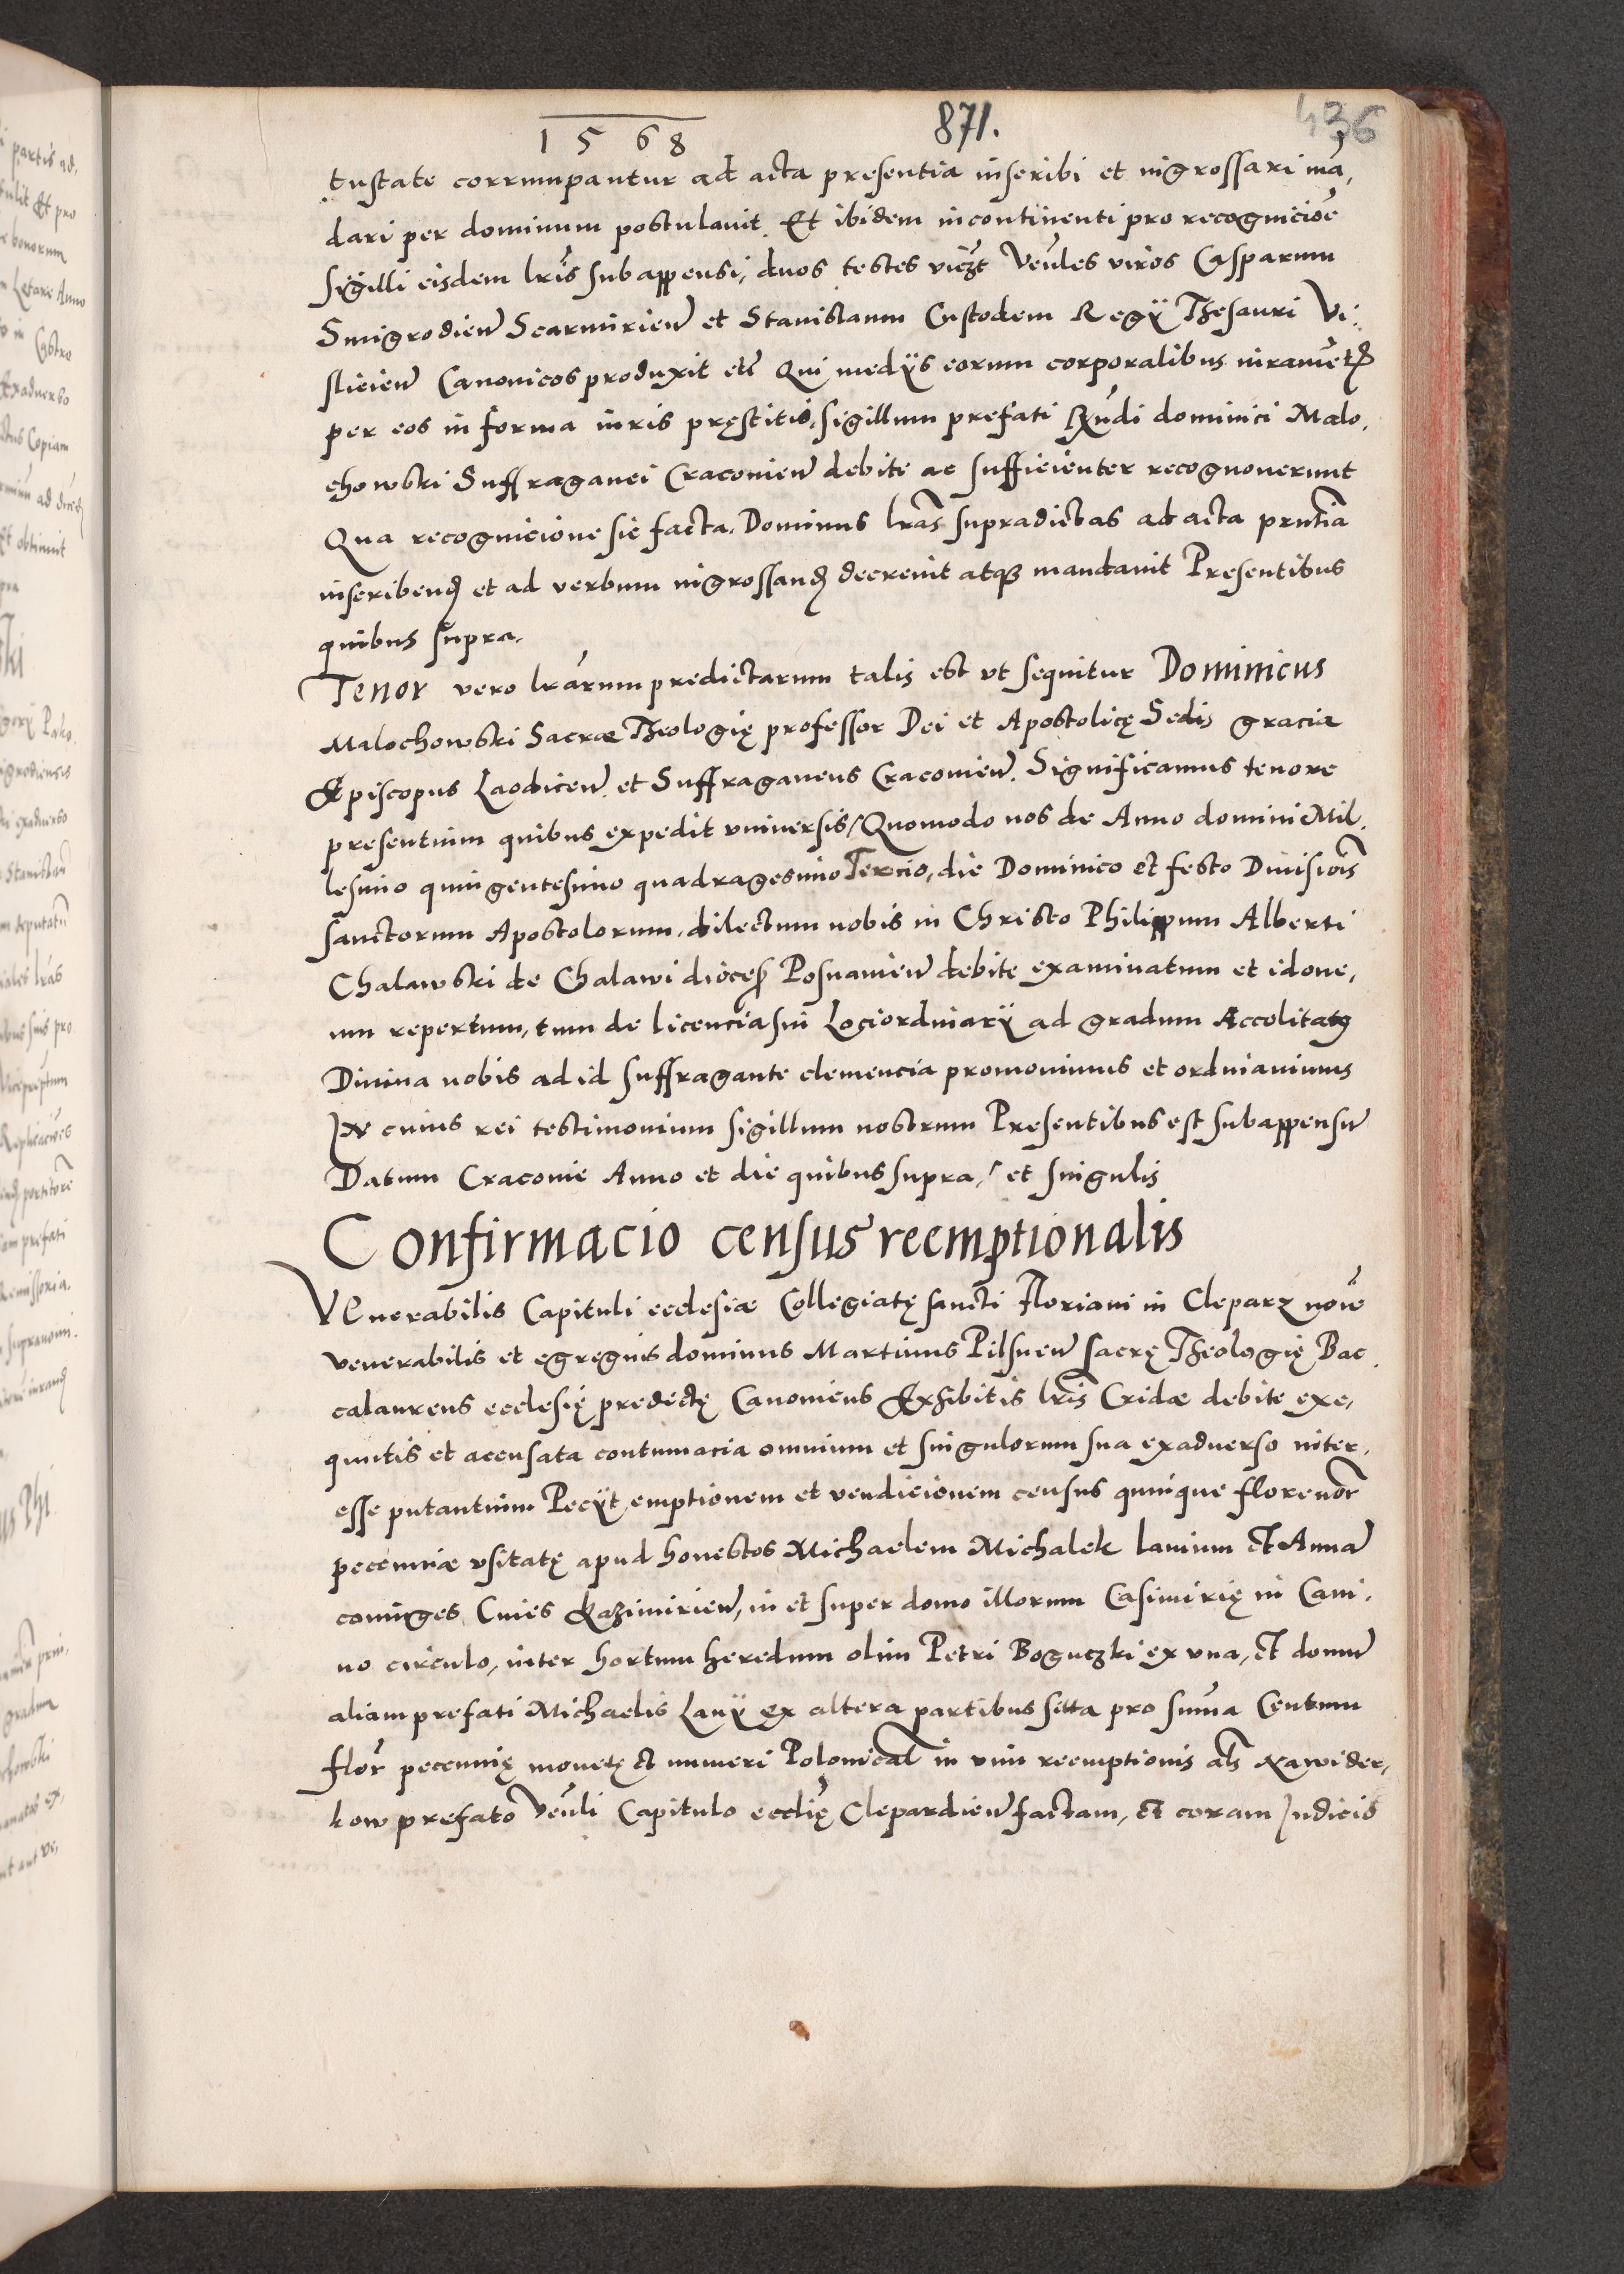 1568 871. 436
tustate corrumpantur ad acta presentia inscribi et ingrossari mā,
dari per dominum postulavit. Et ibidem incontinenti pro recognicioē
sigilli eisdem lris̄ subappensi, duos testes viczt Venles viros Casparum
Smigrodien Scarmirien et Stanislaum Custodem Regÿ Thesauri Vi,
slicien Canonicos produxit etc Qui medÿs eorum corporalibus iuramētis
per eos in forma iuris pręstitis, sigillum prefati Rndi dominici Malo,
chowski Suffraganei Cracovien debite ac sufficienter recognoverunt
Qua recognicione sic facta, Dominus lras̄ supradictas ad acta prntia
inscribend et ad verbum ingrossand decrevit atq3 mandavit Presentibus
quibus supra.
Tenor vero lrarum predictarum talis est vt sequitur Dominicus
Malochowski Sacræ Theologię professor Dei et Apostolicę Sedis gracia
Episcopus Laodicen et Suffraganeus Cracovien. Significamus tenore
presentium quibus expedit vniversis / Quomodo nos de Anno domini Mil,
lesimo quingentesimo quadragesimo Tercio, die Dominico et festo Divisiois
sanctorum Apostolorum, dilectum nobis in Christo Philippum Alberti
Chalawski de Chalawi dioces Posnanien debite examinatum et idone,
um repertum, tum de licencia sui Lociordinarÿ ad gradum Accolitatus
Divina nobis ad id suffragante clemencia promovimus et ordinavimus
In cuius rei testimonium sigillum nostrum Presentibus est subappensu
Datum Cracovie Anno et die quibus supra, / et singulis
Confirmacio census reemptionalis
VEnerabilis Capituli ecclesiæ Collegiatę sancti Floriani in Cleparz noīe
venerabilis et egregius dominus Martinus Pilsnen sacrę Theologię Bac,
calaureus ecclesię predictę Canonicus Exhibitis lris̄ Cridæ debite exe,
quutis et accusata contumacia omnium et singulorum sua exadverso inter,
esse putantium Pecÿt emptionem et vendicionem census quinque florenor
pecuniæ vsitatę apud honestos Michaelem Michalek lanium et Anna
coniuges Cives Kazimirien, in et super domo illorum Casimirię in Cani,
no circulo, inter hortum heredum olim Petri Boguczki ex vna, et domu
aliam prefati Michaelis Lanÿ ex altera partibus sitta pro sum̄a Centum
flor pecunię monetę et numeri Polonical in vim reemptionis als nawider,
kow prefato Venli Capitulo ecclię Clepardien factam, et coram Judicio